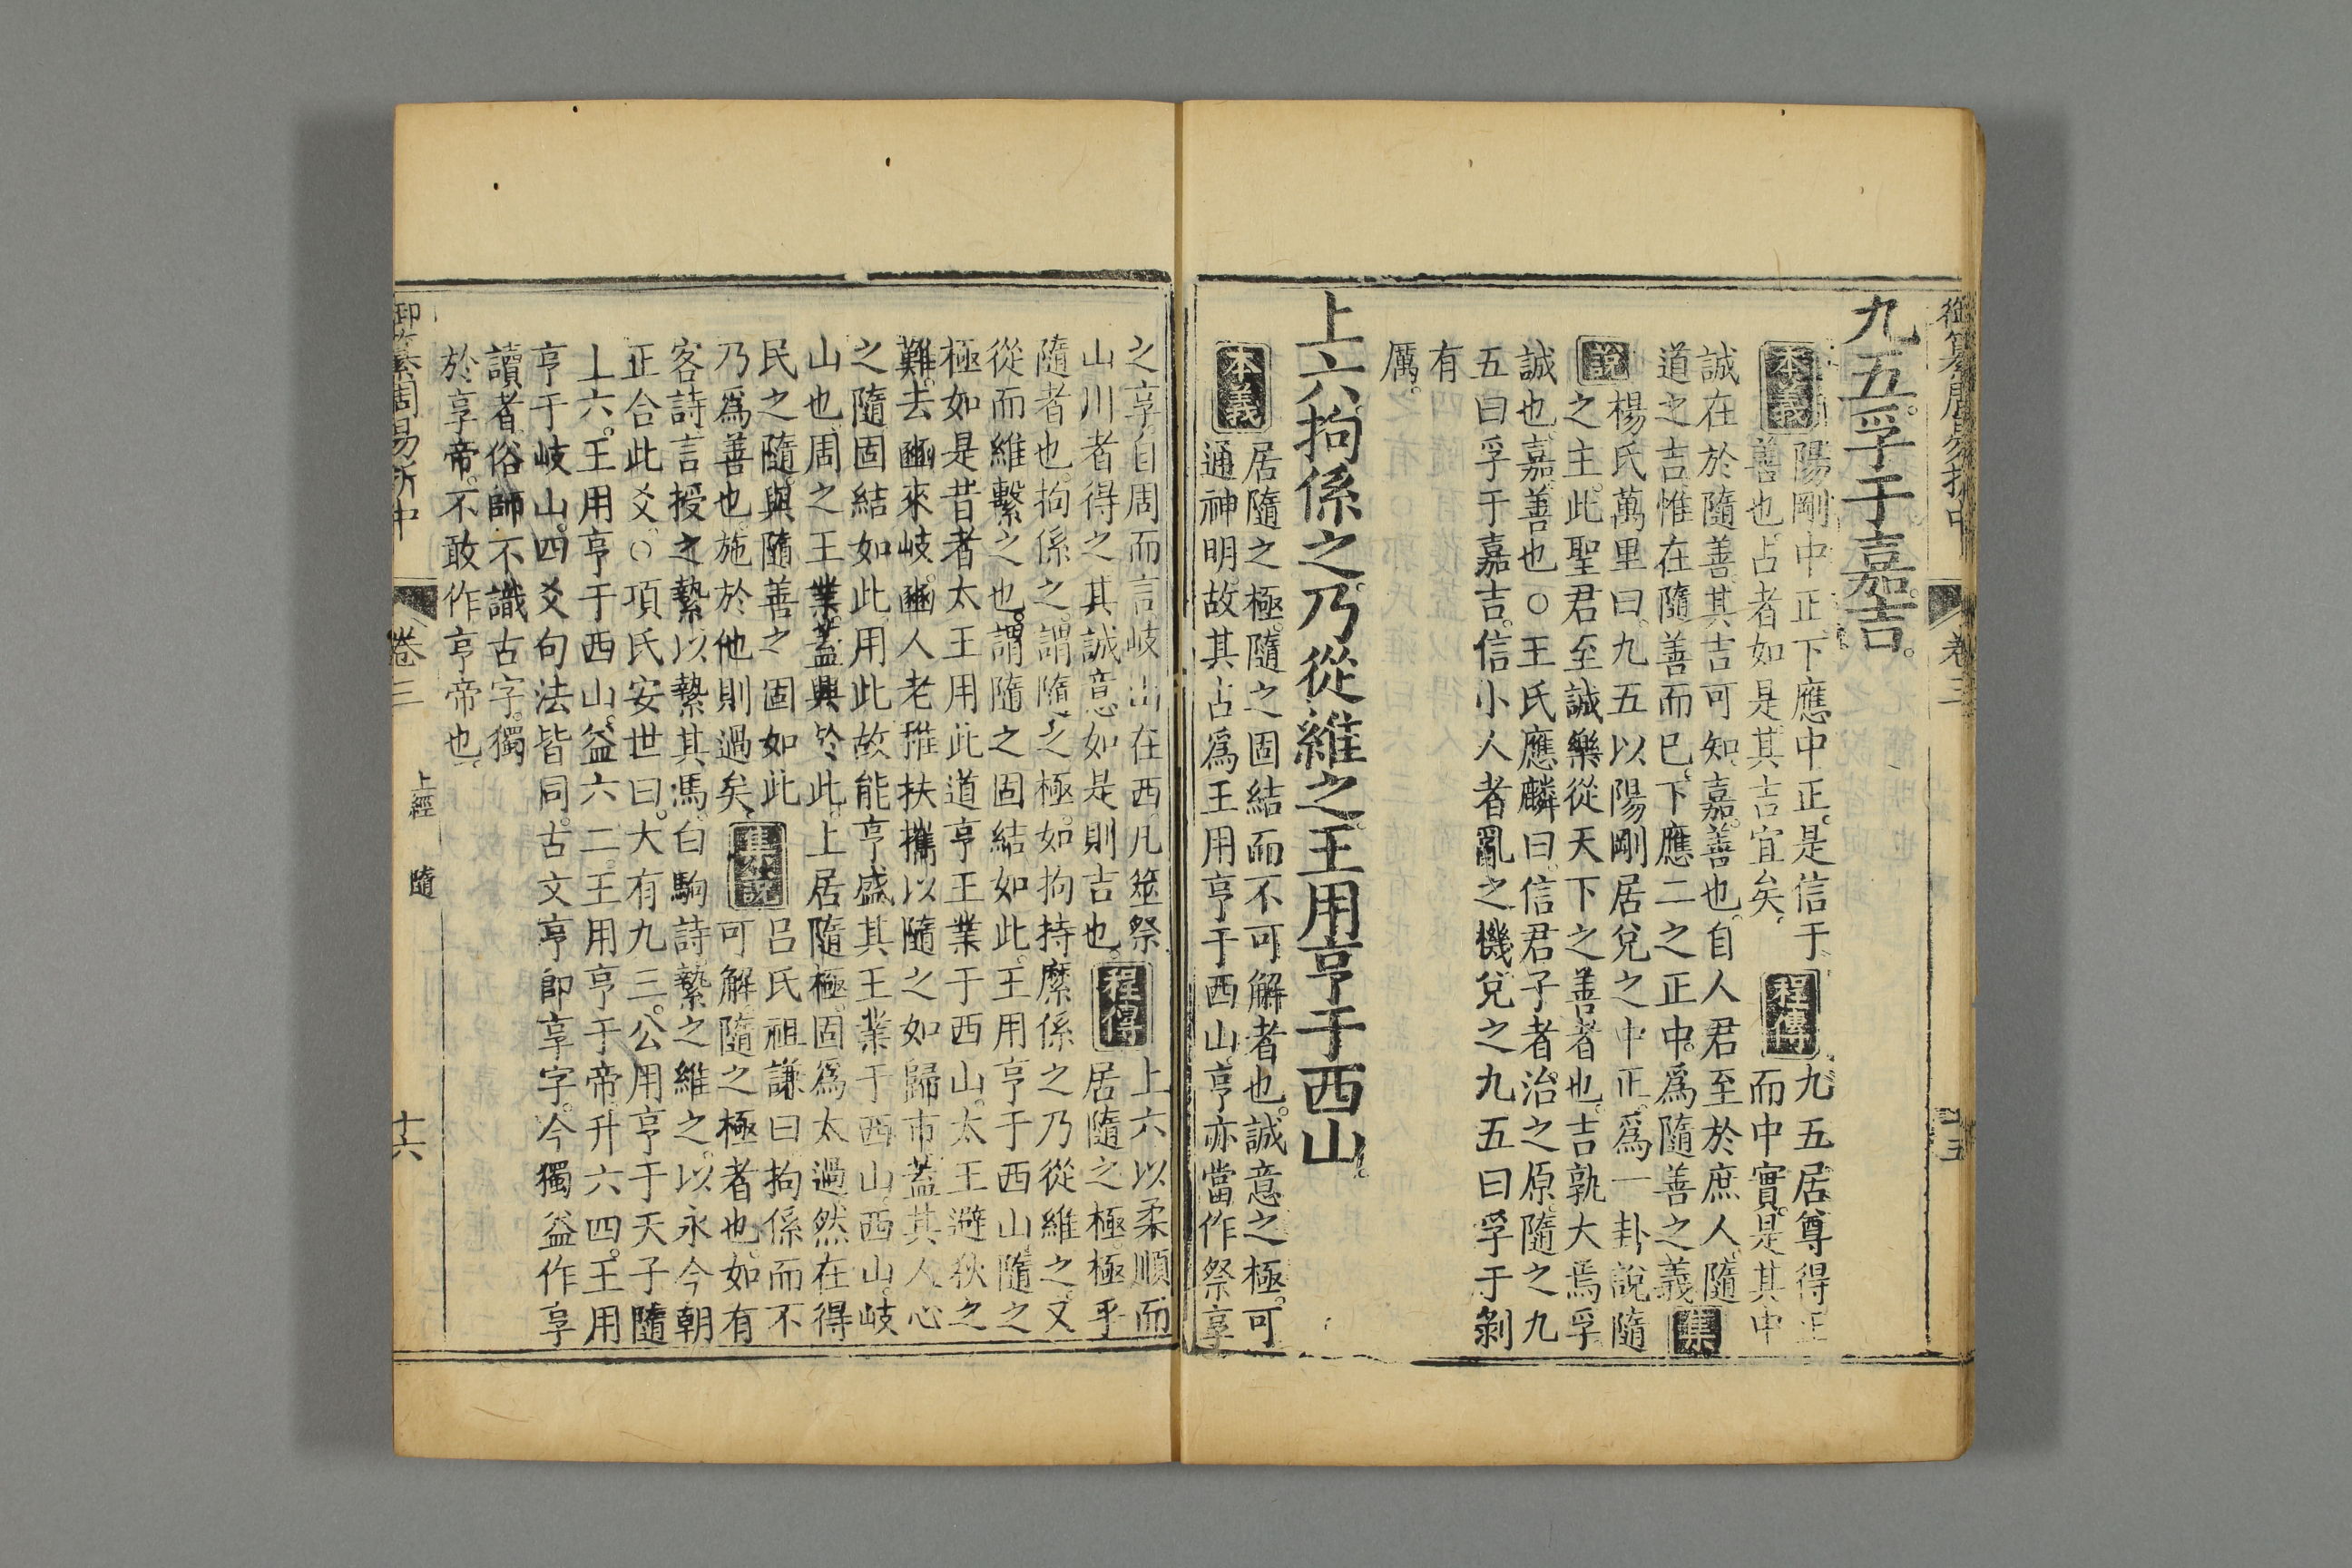 御纂周易折中 卷三 十五
九五孚于嘉吉。
本義 陽剛中正。下應中正。是信于
善也。占者如是。其吉宜矣。 程傳 九五居尊得正
而中實。是其中
誠在於隨善。其吉可知。嘉。善也。自人君至於庶人。隨
道之吉。惟在隨善而已。下應二之正中。爲隨善之義 集
說 楊氏萬里曰。九五以陽剛居兌之中正。爲一卦說隨
之主。此聖君至誠樂從天下之善者也。吉孰大焉。孚
誠也。嘉。善也○王氏應麟曰。信君子者。治之原。隨之九
五曰孚于嘉吉。信小人者。亂之機。兌之九五曰孚于剝
有
厲。
上六拘係之。乃從維之。王用亨于西山。
本義 居隨之極。隨之固結而不可解者也。誠意之極。可
通神明。故其占爲王用亨于西山。亨亦當作祭享
之享。自周而言。岐山在西。凡筮祭
山川者得之。其誠意如是則吉也。 程傳 上六以柔順而
居隨之極。極乎
隨者也。拘係之。謂隨之極。如拘持縻係之。乃從維之。又
從而維繫之也。謂隨之固結如此。王用亨于西山。隨之
極如是。昔者太王用此道亨王業于西山。太王避狄之
難。去豳來岐。豳人老稚扶攜以隨之如歸市。蓋其人心
之隨固結如此。用此故能亨盛其王業于西山。西山。岐
山也。周之王業。蓋興於此。上居隨極。固爲太過。然在得
民之隨。與隨善之固如此
乃爲善也。施於他則過矣。 集說 呂氏祖謙曰。拘係而不
可解。隨之極者也。如有
客詩。言授之縶。以縶其馬。白駒詩。縶之維之。以永今朝
正合此爻。○項氏安世曰。大有九三。公用亨于天子。隨
上六。王用亨于西山。益六二。王用亨于帝。升六四。王用
亨于岐山。四爻句法皆同。古文亨卽享字。今獨益作享
讀者。俗師不識古字。獨
於享帝。不敢作亨帝也。
御纂周易折中 卷三 上經 隨 十六